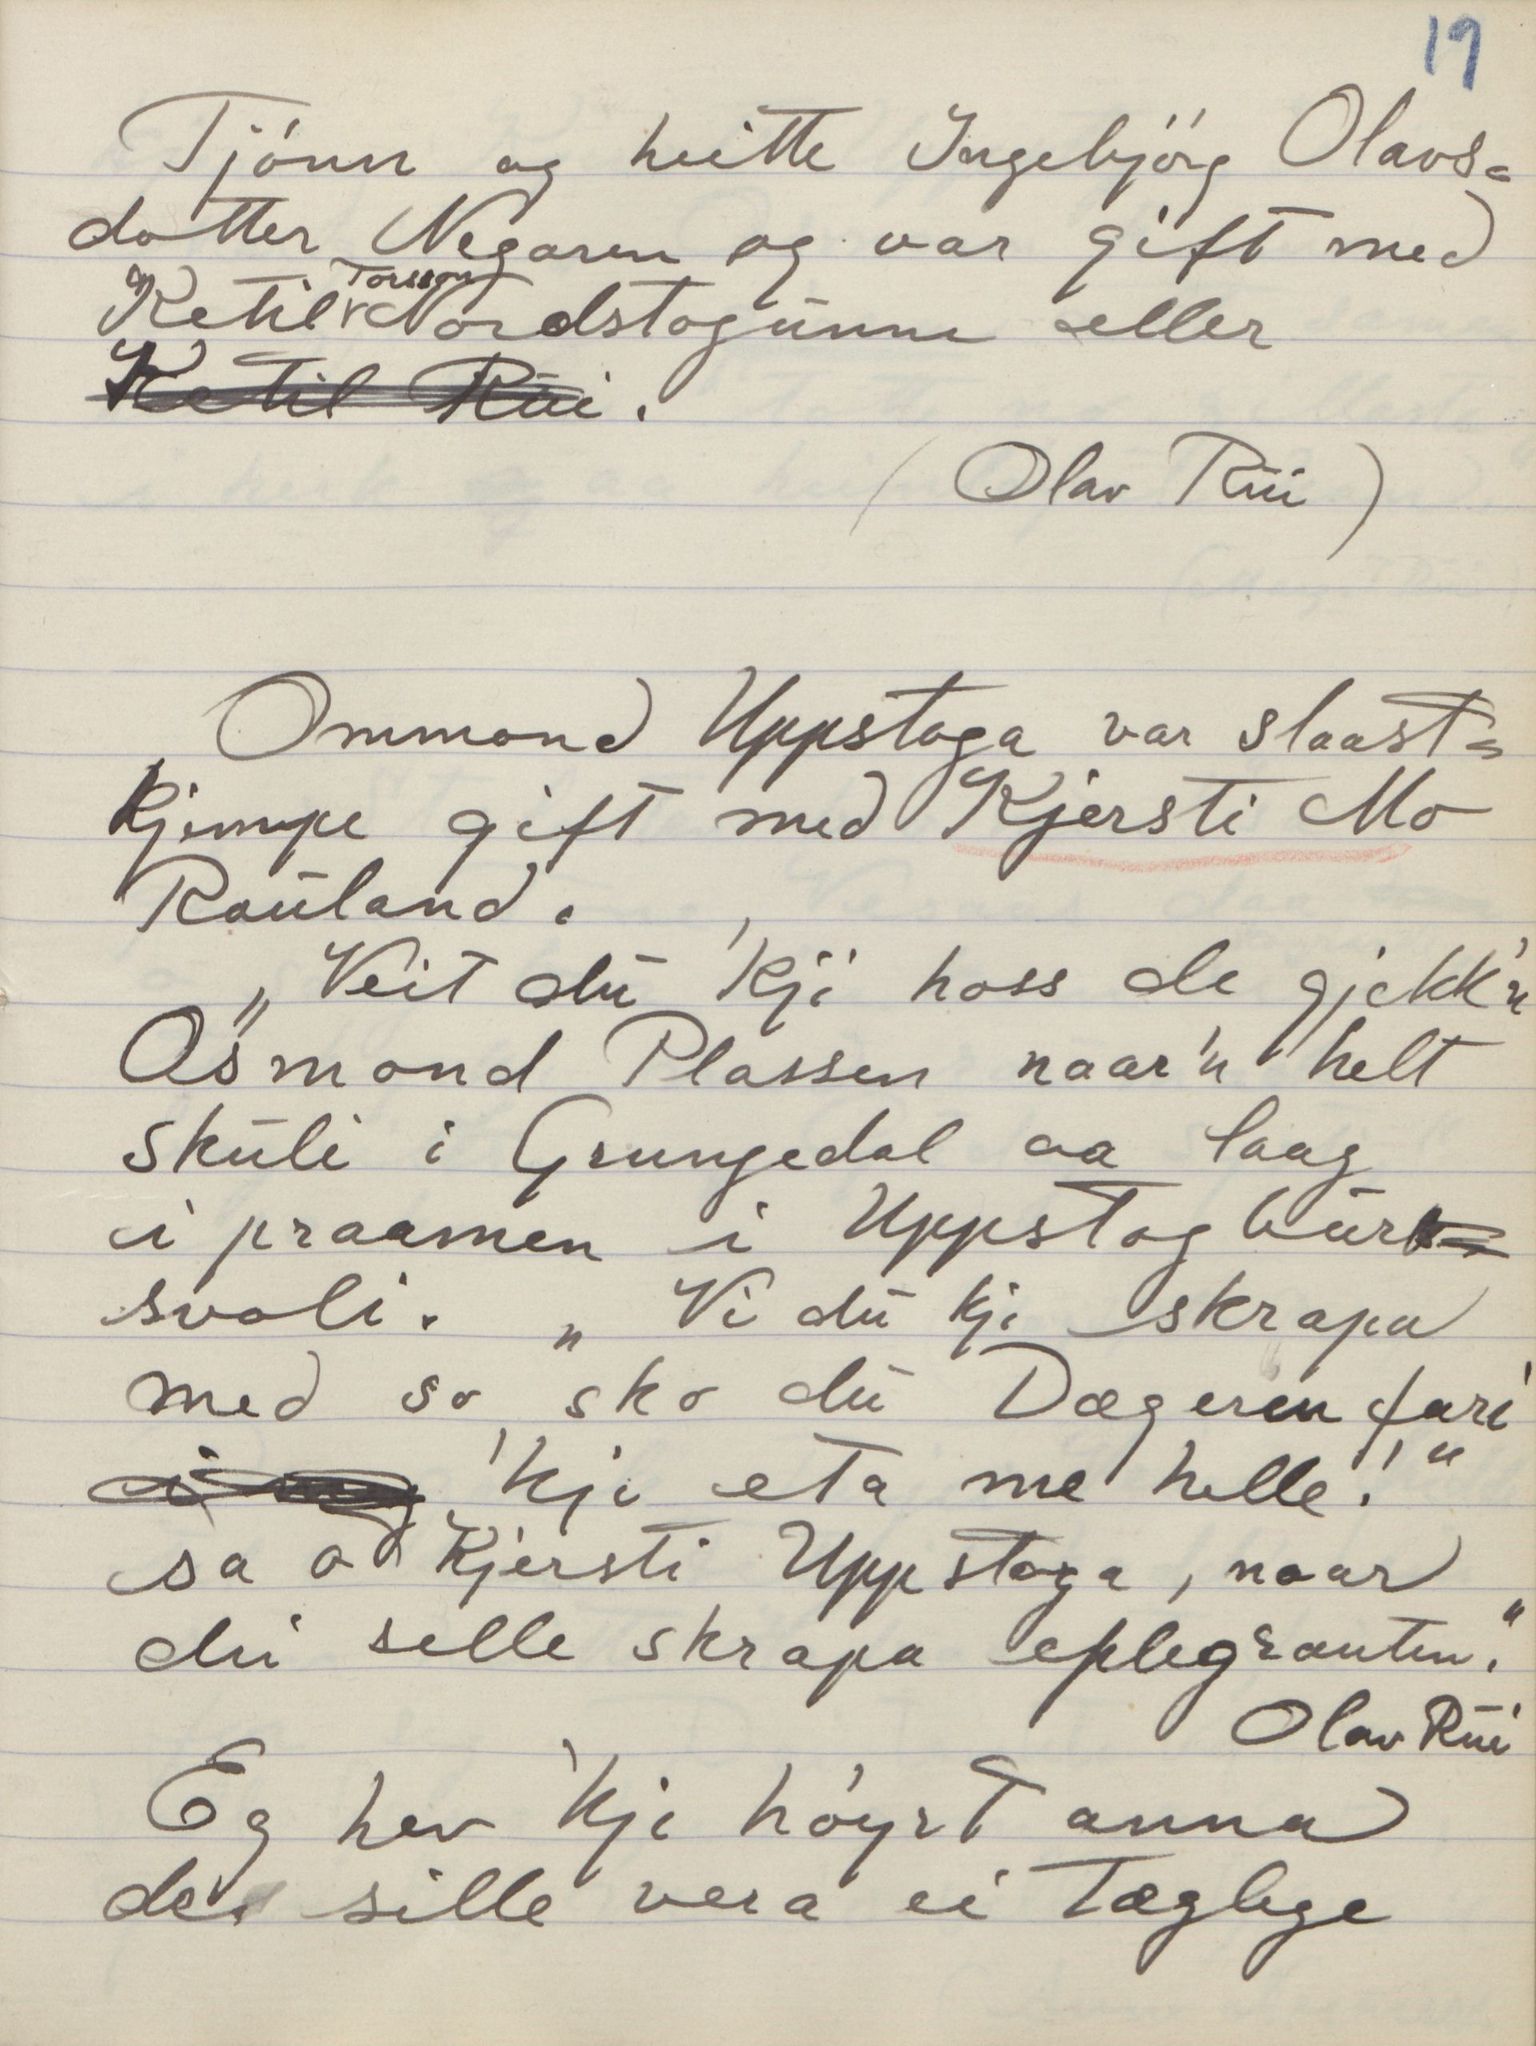 19
Tjónn og heitte Ingebjörg Olavs=
dotter Negaren og var gift med
Ketil Torsson Nordstogunne eller
Ketil Rui.
(Olav Rui)
Ommond Uppstoga var slaast=
kjempe gift med Kjersti Mo
Rauland.
„Veit du 'kji hoss de gjekk'n
Osmond Plassen naar'n helt
skuli i Grungedal aa laag
i praamen i Uppstogbur=
svoli. „Vi du kji skrapa
med so sko du Dægeren fari
'kji eta me helle!"
sa o Kjersti Uppstoga, naar
du selle skrapa eplegrauten."
Olav Rui
Eg hev 'kji höyrt anna
de sille vera ei tæglege